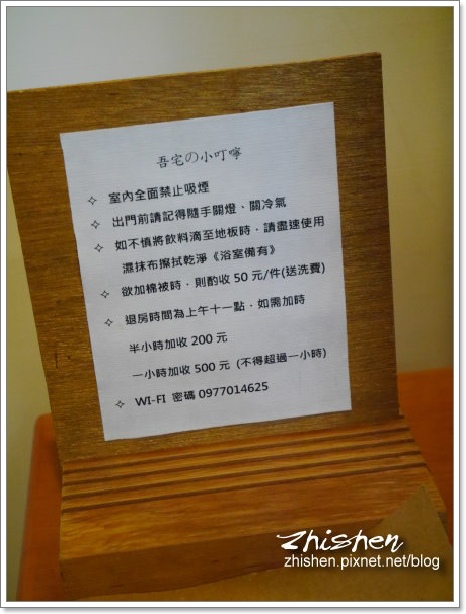 吾宅の小叮嚀
✧ 室內全面禁止吸煙
✧ 出門前請記得隨手關燈、關冷氣
✧ 如不慎將飲料滴至地板時，請盡速使用
濕抹布擦拭乾淨《浴室備有》
✧ 欲加棉被時，則酌收 50 元/件(送洗費)
✧ 退房時間為上午十一點，如需加時
半小時加收 200 元
一小時加收 500 元 (不得超過一小時)
✧ WI-FI 密碼 0977014625
Zhishen
zhishen.pixnet.net/blog